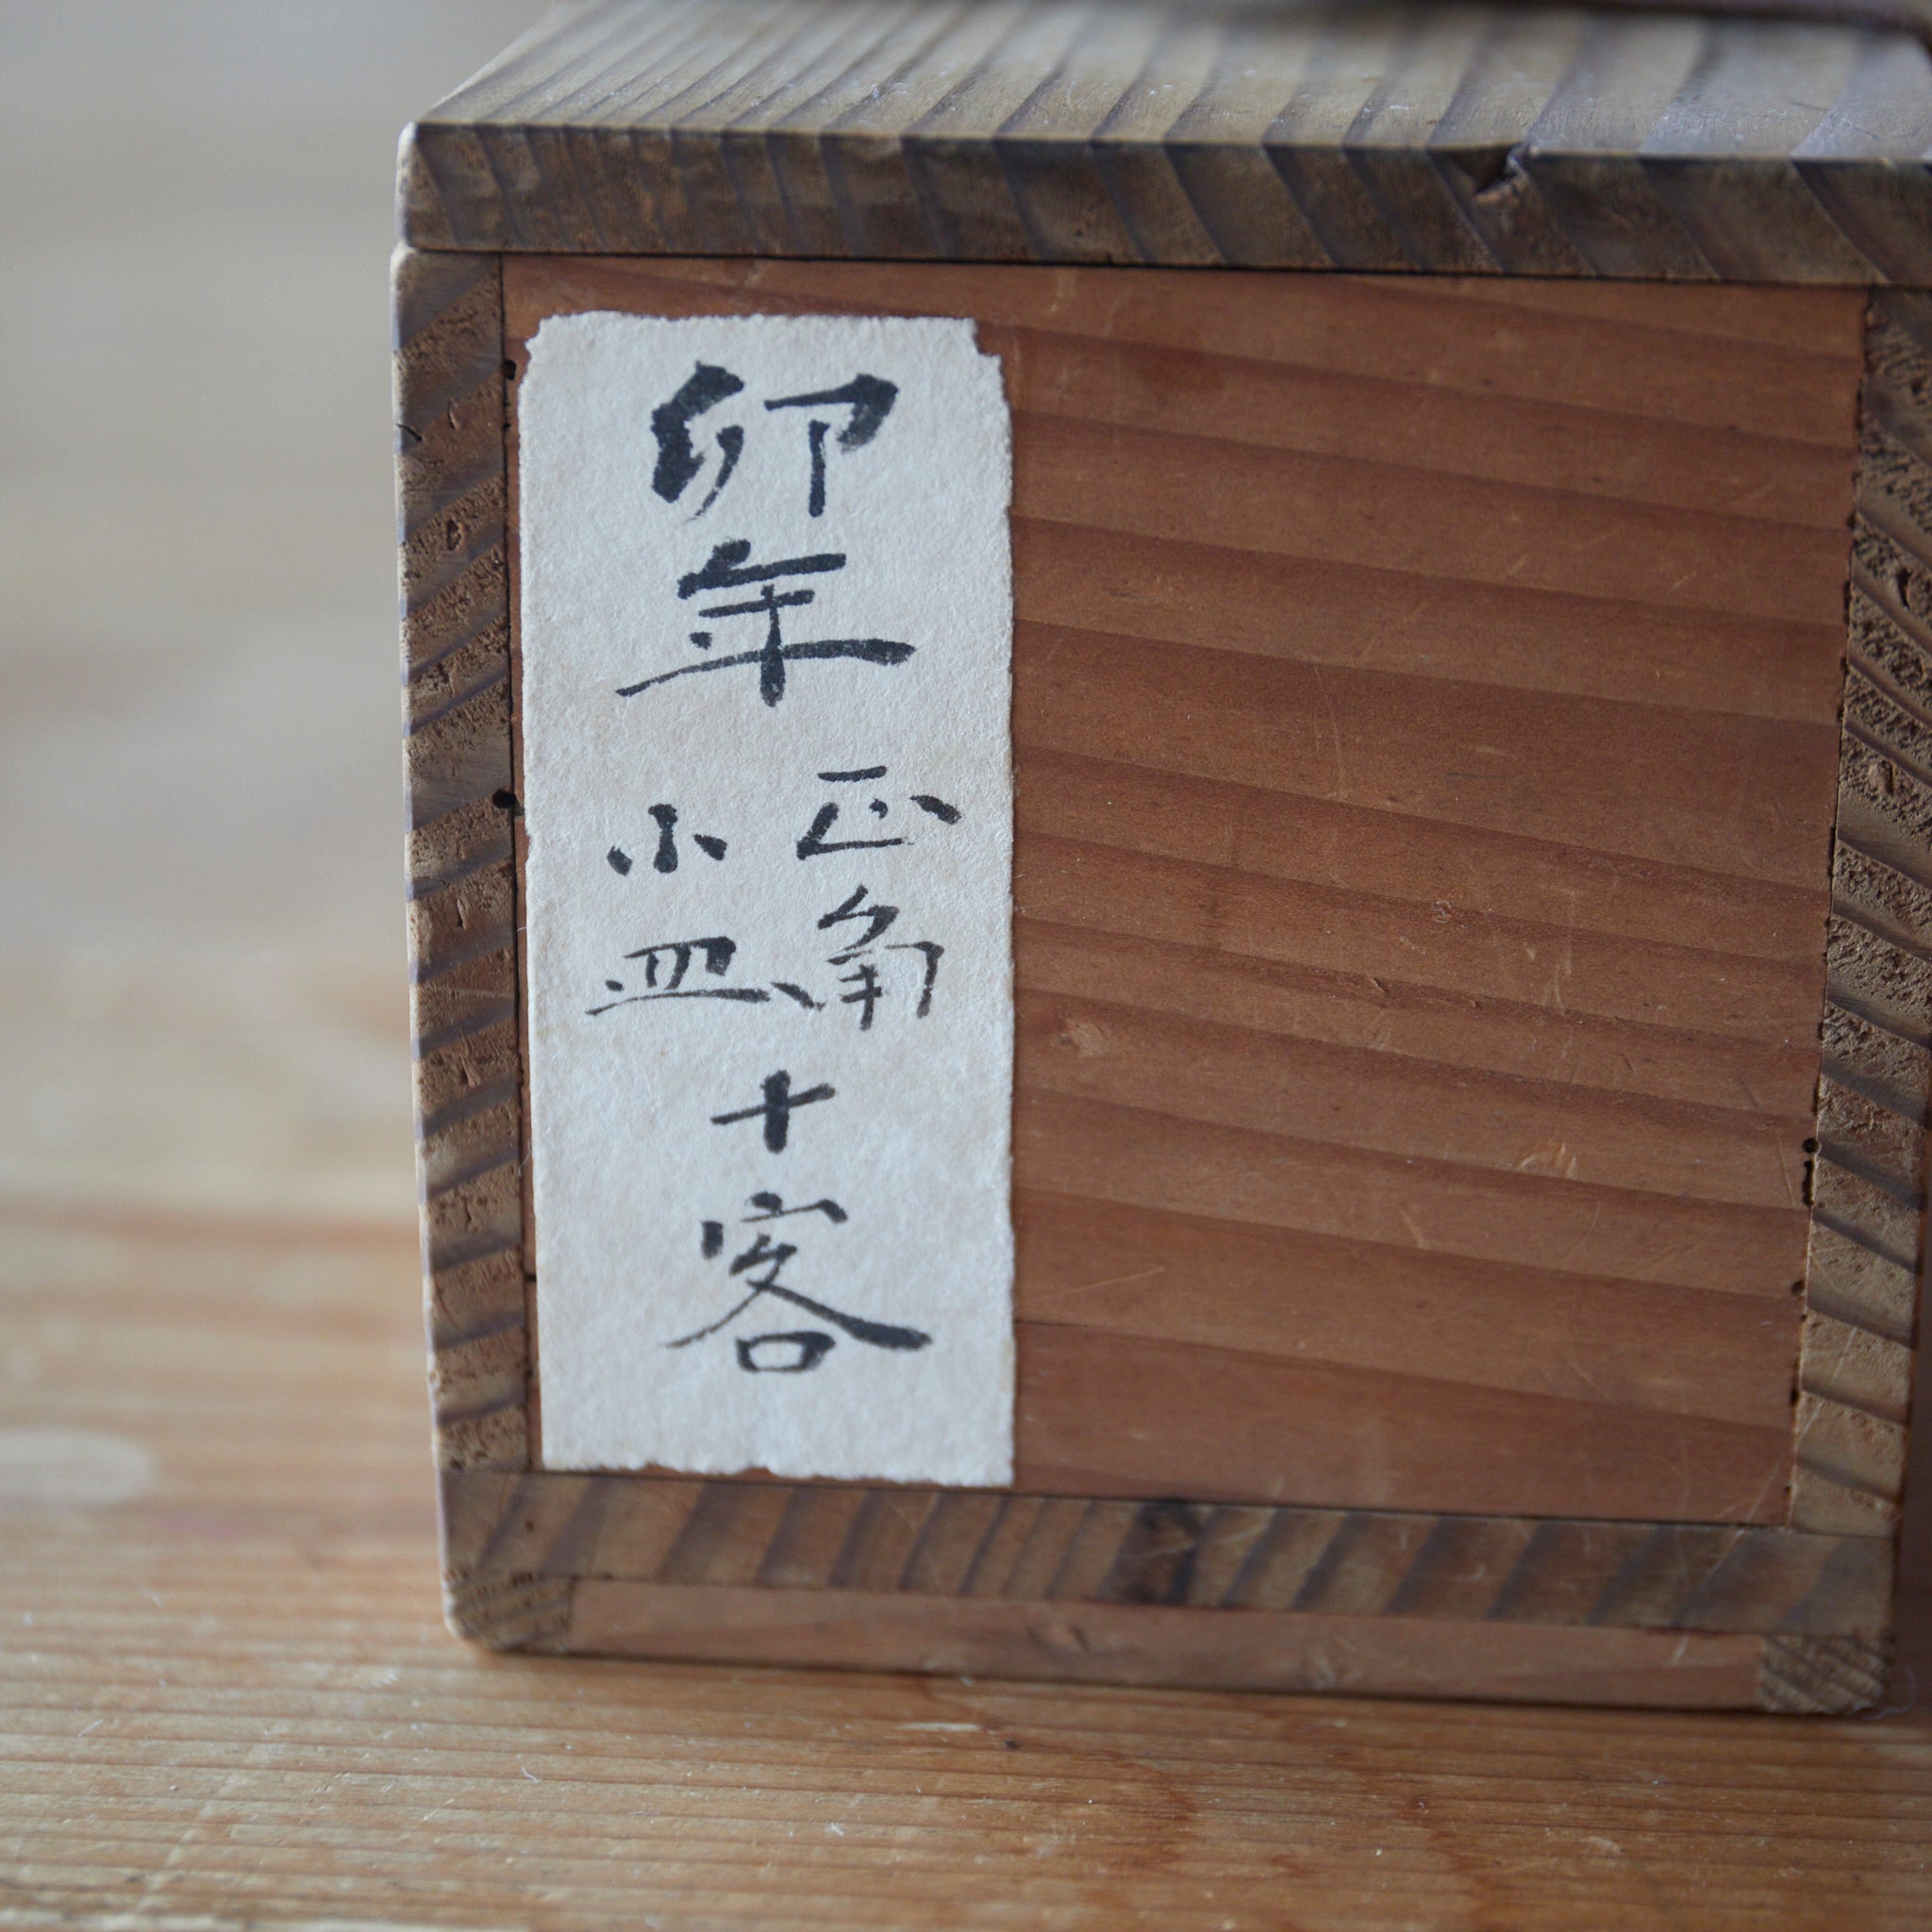 卯年
正角
小皿
十客